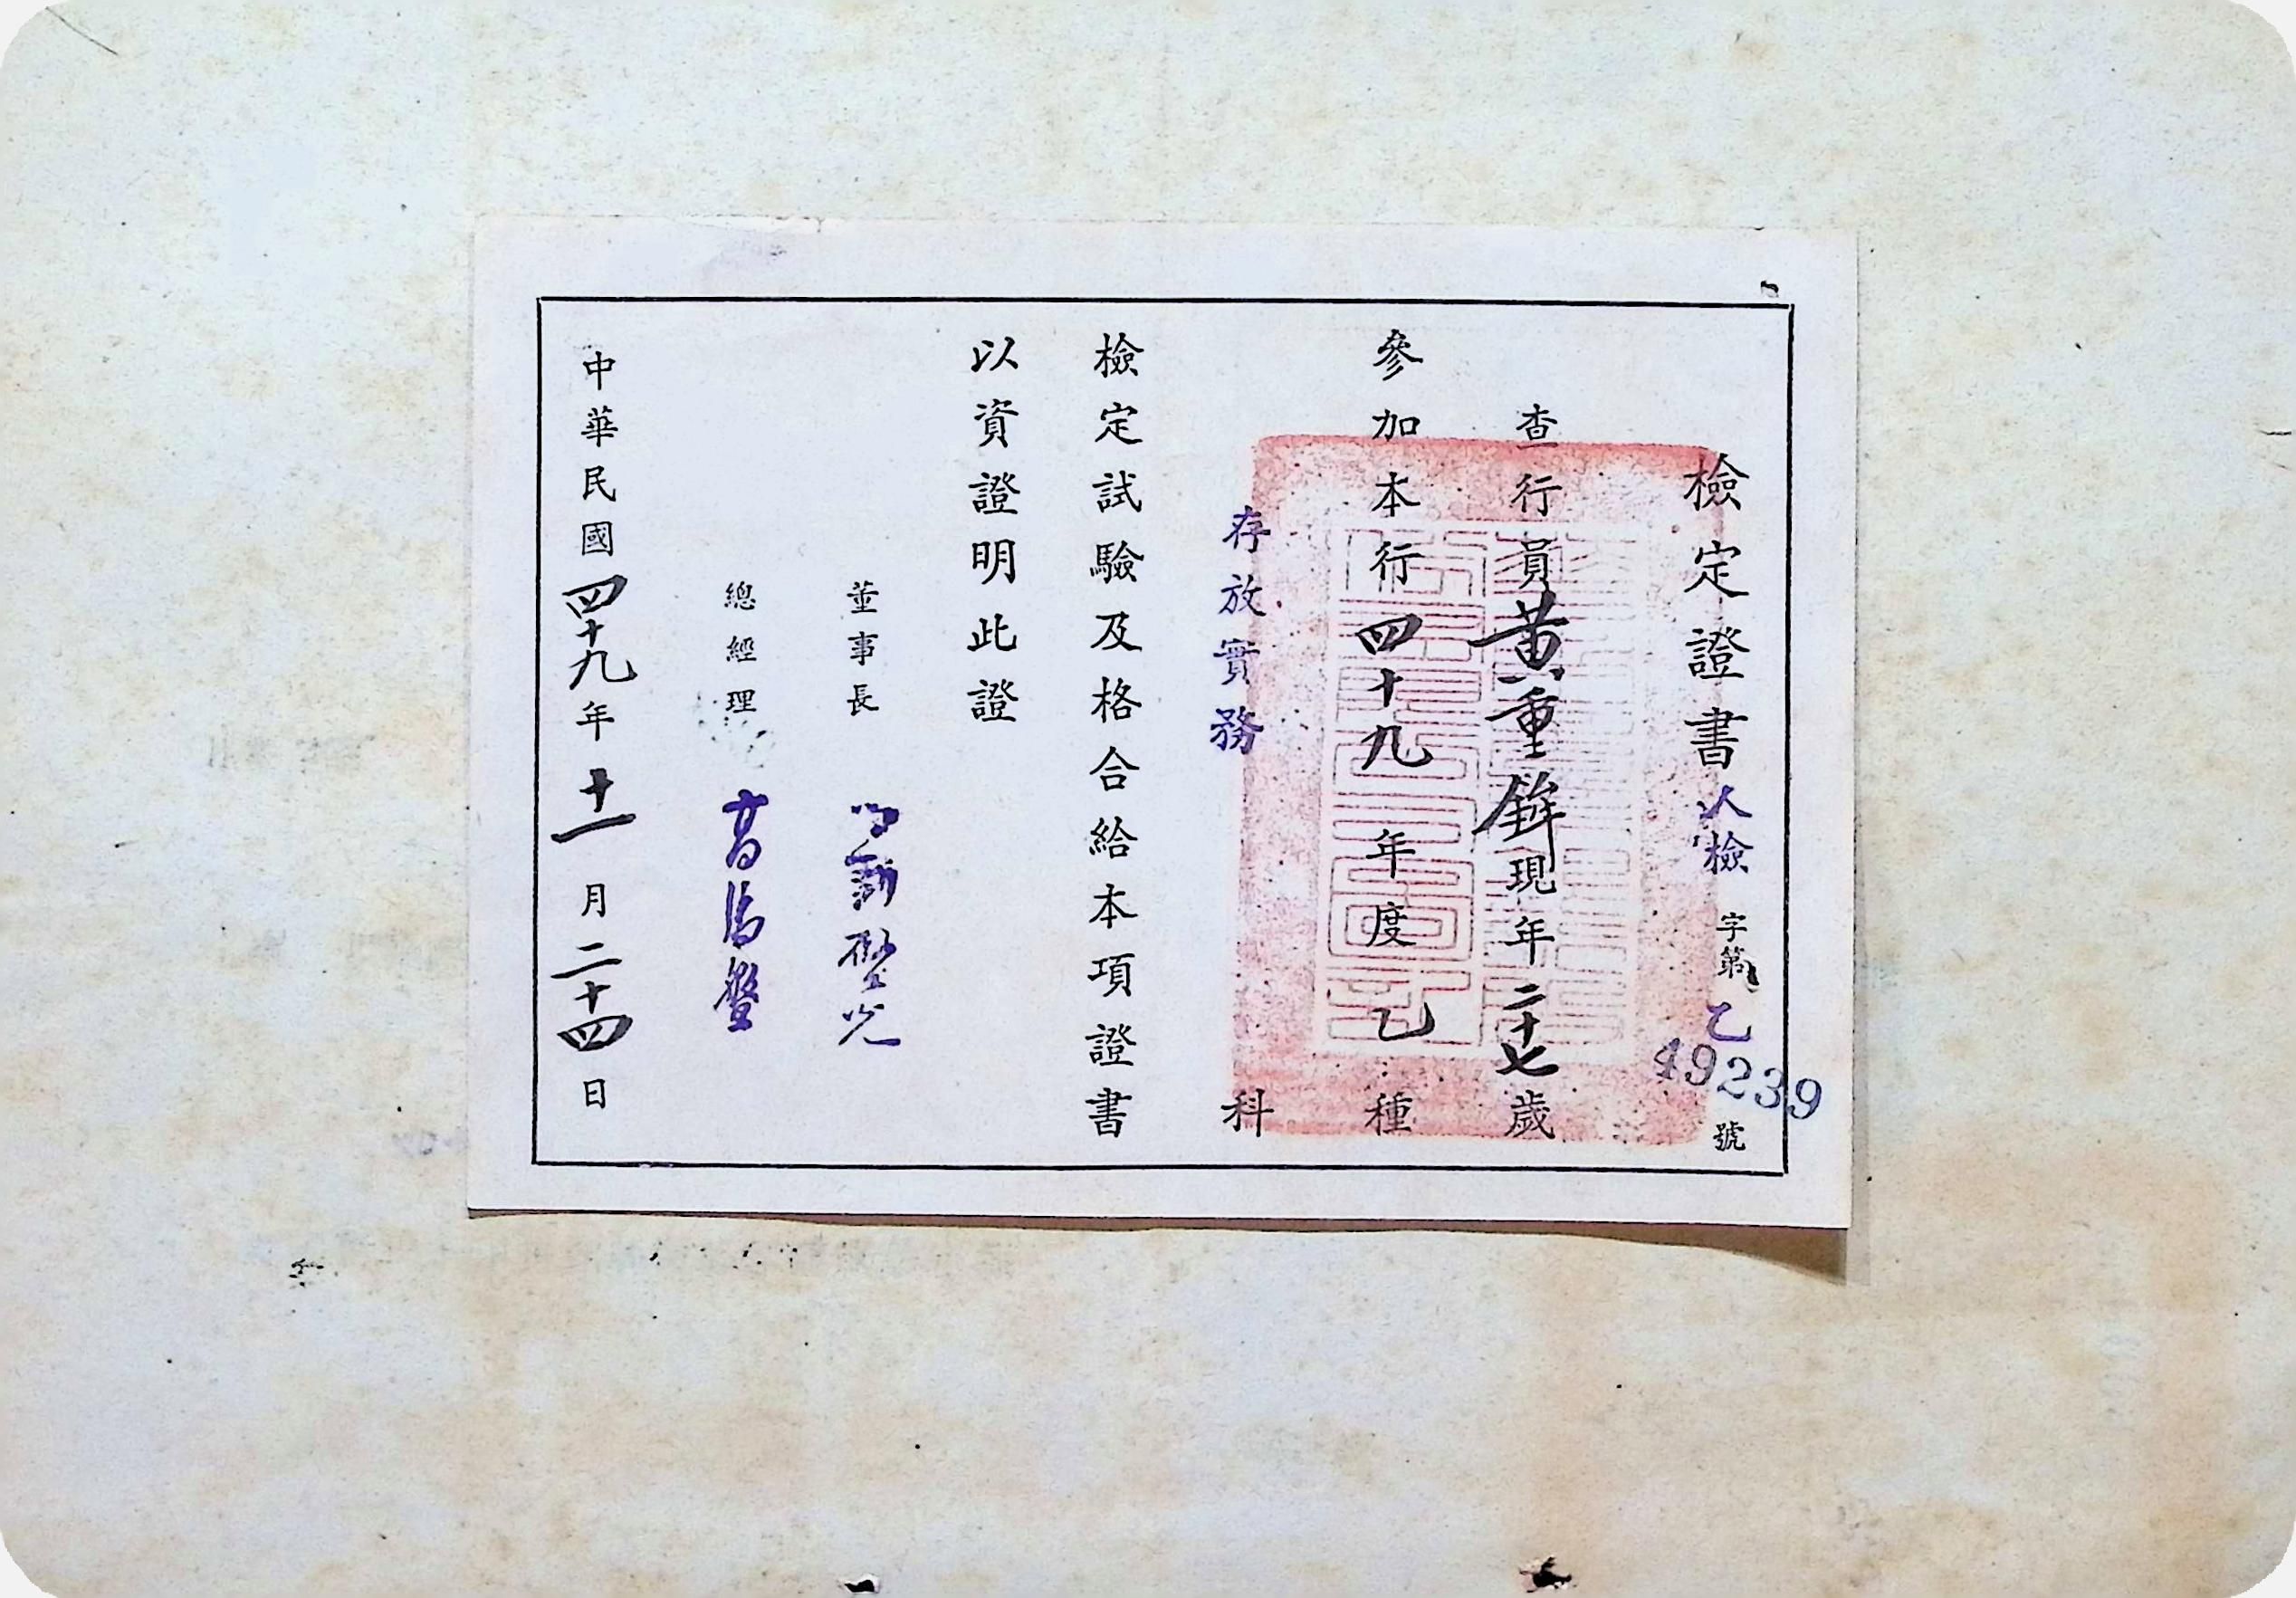 檢定證書人檢字第乙49239號
查行員黃重鉾現年二十七歲
參加本行四十九年度乙種
存放實務科
檢定試驗及格合給本項證書
以資證明此證
董事長
總經理 高湯盤
中華民國四十九年十一月二十四日